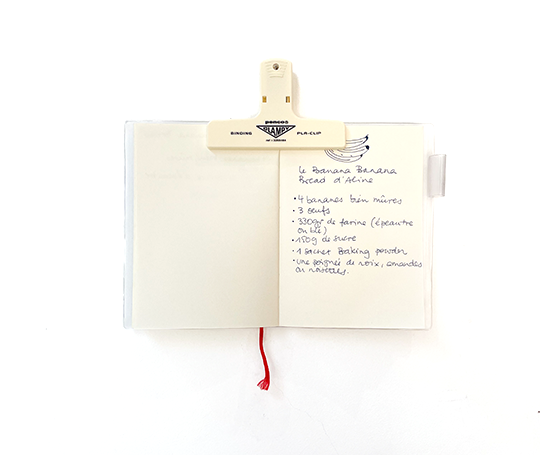 penco®
BINDING PLAMPY PLA-CLIP
Le Banana Banana
Bread d'Aline
• 4 bananes bien mûres
• 3 œufs
• 330gr de farine (épeautre
ou blé)
• 150g de sucre
• 1 sachet Baking powder
• une poignée de noix, amandes
ou noisettes.